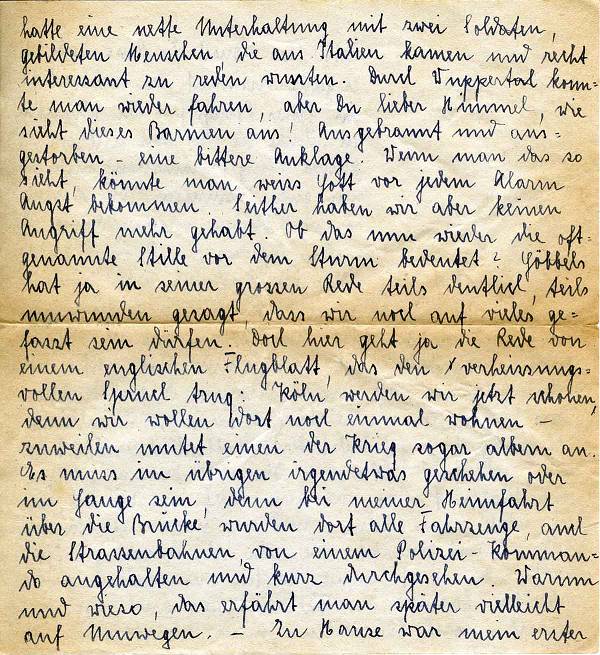 hatte eine nette Unterhaltung mit zwei Soldaten,
gebildeten Menschen, die aus Italien kamen und recht
interessant zu reden wussten. Durch Wuppertal konn-
te man wieder fahren, aber Du lieber Himmel, wie
sieht dieses Barmen aus! Ausgebrannt und aus-
gestorben - eine bittere Anklage. Wenn man das so
sieht, könnte man weiss Gott vor jedem Alarm
Angst bekommen. Seither haben wir aber keinen
Angriff mehr gehabt. Ob das nun wieder die oft-
genannte Stille vor dem Sturm bedeutet? Göbbels
hat ja in seiner grossen Rede teils deutlich, teils
umwunden gesagt, dass wir noch auf vieles ge-
fasst sein dürfen. Doch hier geht ja die Rede von
einem englischen Flugblatt, das den verheissungs-
vollen Spruch trug: Köln werden wir jetzt schonen,
denn wir wollen dort noch einmal wohnen -
zuweilen mutet einen der Krieg sogar albern an.
Es muss im übrigen irgendetwas geschehen oder
im Gange sein, denn bei meiner Heimfahrt
über die Brücke wurden dort alle Fahrzeuge, auch
die Strassenbahnen, von einem Polizei-Komman-
do angehalten und kurz durchgesehen. Warum
und wieso, das erfährt man später vielleicht
auf Umwegen. - Zu Hause war mein erster